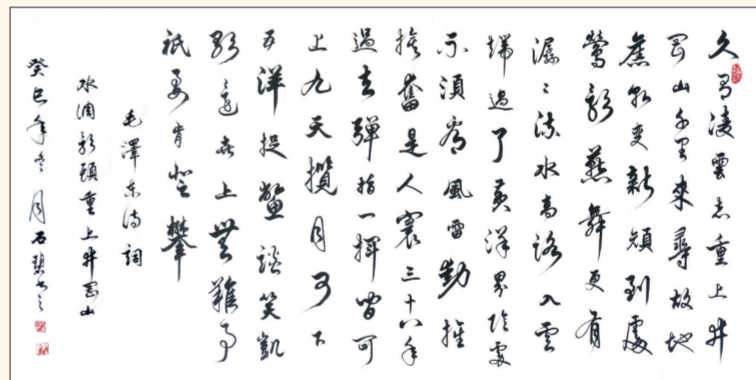 久有凌雲志重上井
岡山千里來尋故地
舊貌變新顏到處
鶯歌燕舞更有
潺〻流水高路入雲
端過了黃洋界險處
不須看風雷動旌
旗奮是人寰三十八年
過去彈指一揮間可
上九天攬月可下
五洋捉鱉談笑凱
歌還世上無難事
祇要肯登攀
毛澤東詩詞
水調歌頭重上井岡山
癸巳年冬月石書之